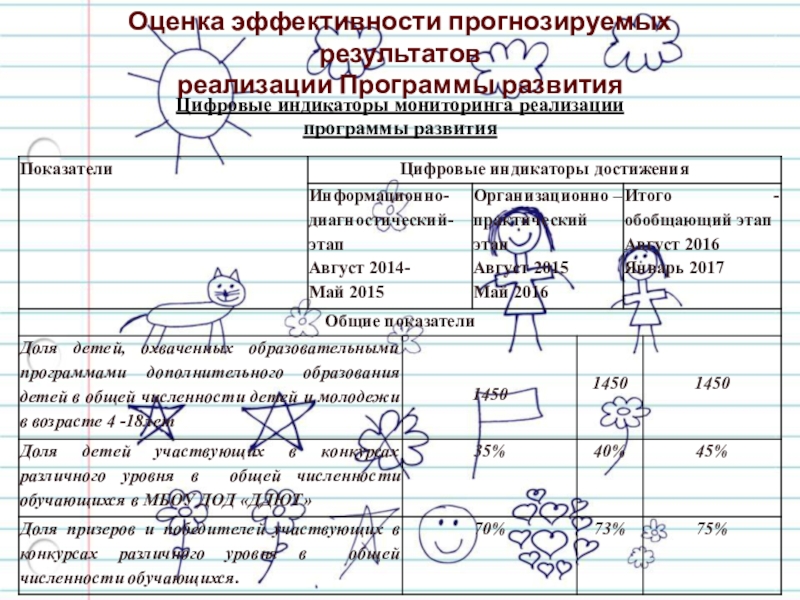 Оценка эффективности прогнозируемых
результатов
реализации Программы развития
Цифровые индикаторы мониторинга реализации
программы развития
Показатели
Цифровые индикаторы достижения
Информационно-
диагностический-
этап
Август 2014-
Май 2015
Организационно –
практический
этап
Август 2015
Май 2016
Итого -
обобщающий этап
Август 2016
Январь 2017
Общие показатели
Доля детей, охваченных образовательными
программами дополнительного образования
детей в общей численности детей и молодежи
в возрасте 4 -18лет
1450
1450
1450
Доля детей участвующих в конкурсах
различного уровня в общей численности
обучающихся в МБОУ ДОД «ДДЮТ»
35%
40%
45%
Доля призеров и победителей участвующих в
конкурсах различного уровня в общей
численности обучающихся.
70%
73%
75%